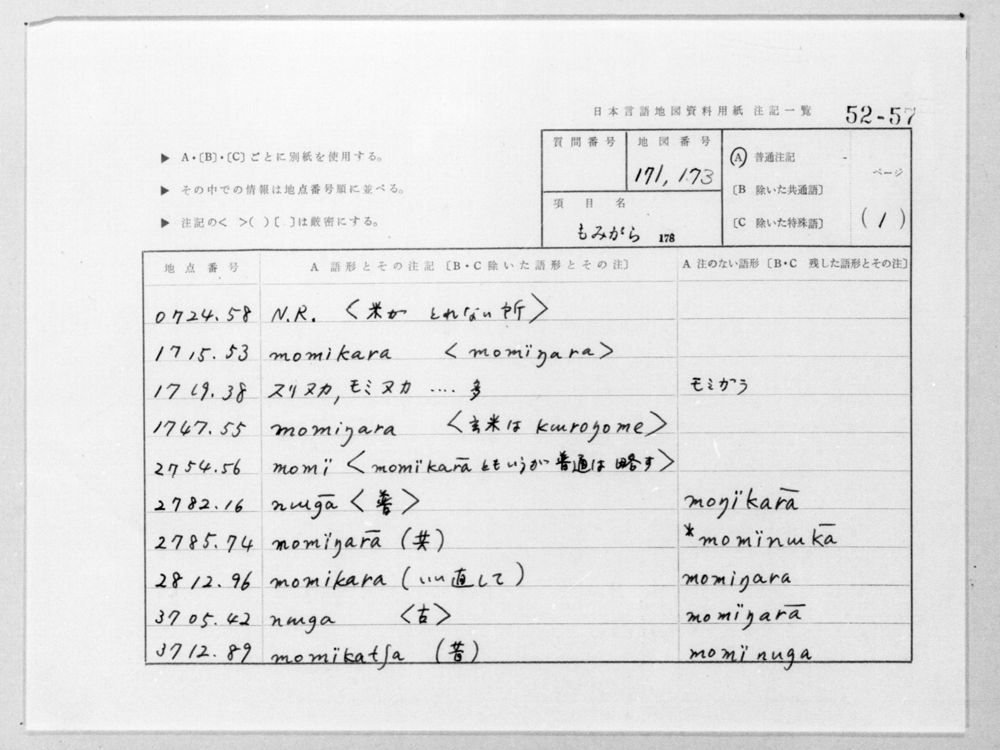 日本言語地図資料用紙 注記一覧 52-57
▶ A・〔B〕・〔C〕ごとに別紙を使用する。
▶ その中での情報は地点番号順に並べる。
▶ 注記の< >( )[ ]は厳密にする。
質問番号 地図番号
171, 173
項目名
もみがら 178
Ⓐ 普通注記
〔B 除いた共通語〕
〔C 除いた特殊語〕
ページ
(1)
地点番号 A 語形とその注記〔B・C 除いた語形とその注〕 A 注のない語形〔B・C 残した語形とその注〕
0724.58 N.R. <米が とれない所>
1715.53 momikara <momiŋara>
1719.38 スリヌカ, モミヌカ …. 多 モミガラ
1747.55 momiŋara <玄米は kɯroŋome>
2754.56 momï <momïkar̄a ともいうが 普通は 略す>
2782.16 nɯḡa <普> moŋïkar̄a
2785.74 momïŋar̄a (共) *momïnɯk̄a
2812.96 momikara (いい直して) momiŋara
3705.42 nɯga <古> momïŋar̄a
3712.89 momikatʃa (昔) mominuga